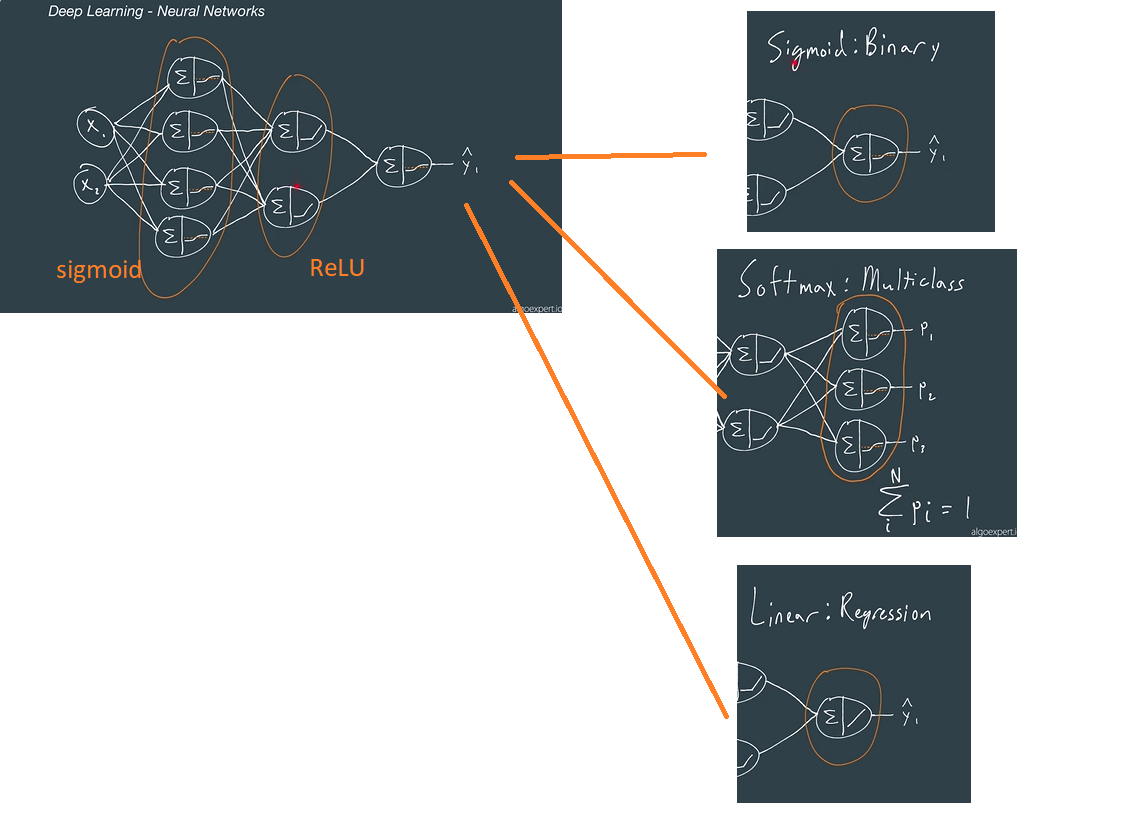 Deep Learning - Neural Networks
x₁
x₂
Σ
Σ
Σ
Σ
Σ
Σ
Σ
ŷ₁
sigmoid
ReLU
algoexpert.io
Sigmoid: Binary
Σ
Σ
Σ
ŷ₁
Softmax: Multiclass
Σ
Σ
Σ
Σ
Σ
P₁
P₂
P₃
N
Σ Pi = 1
i
algoexpert.i
Linear: Regression
Σ
ŷ₁